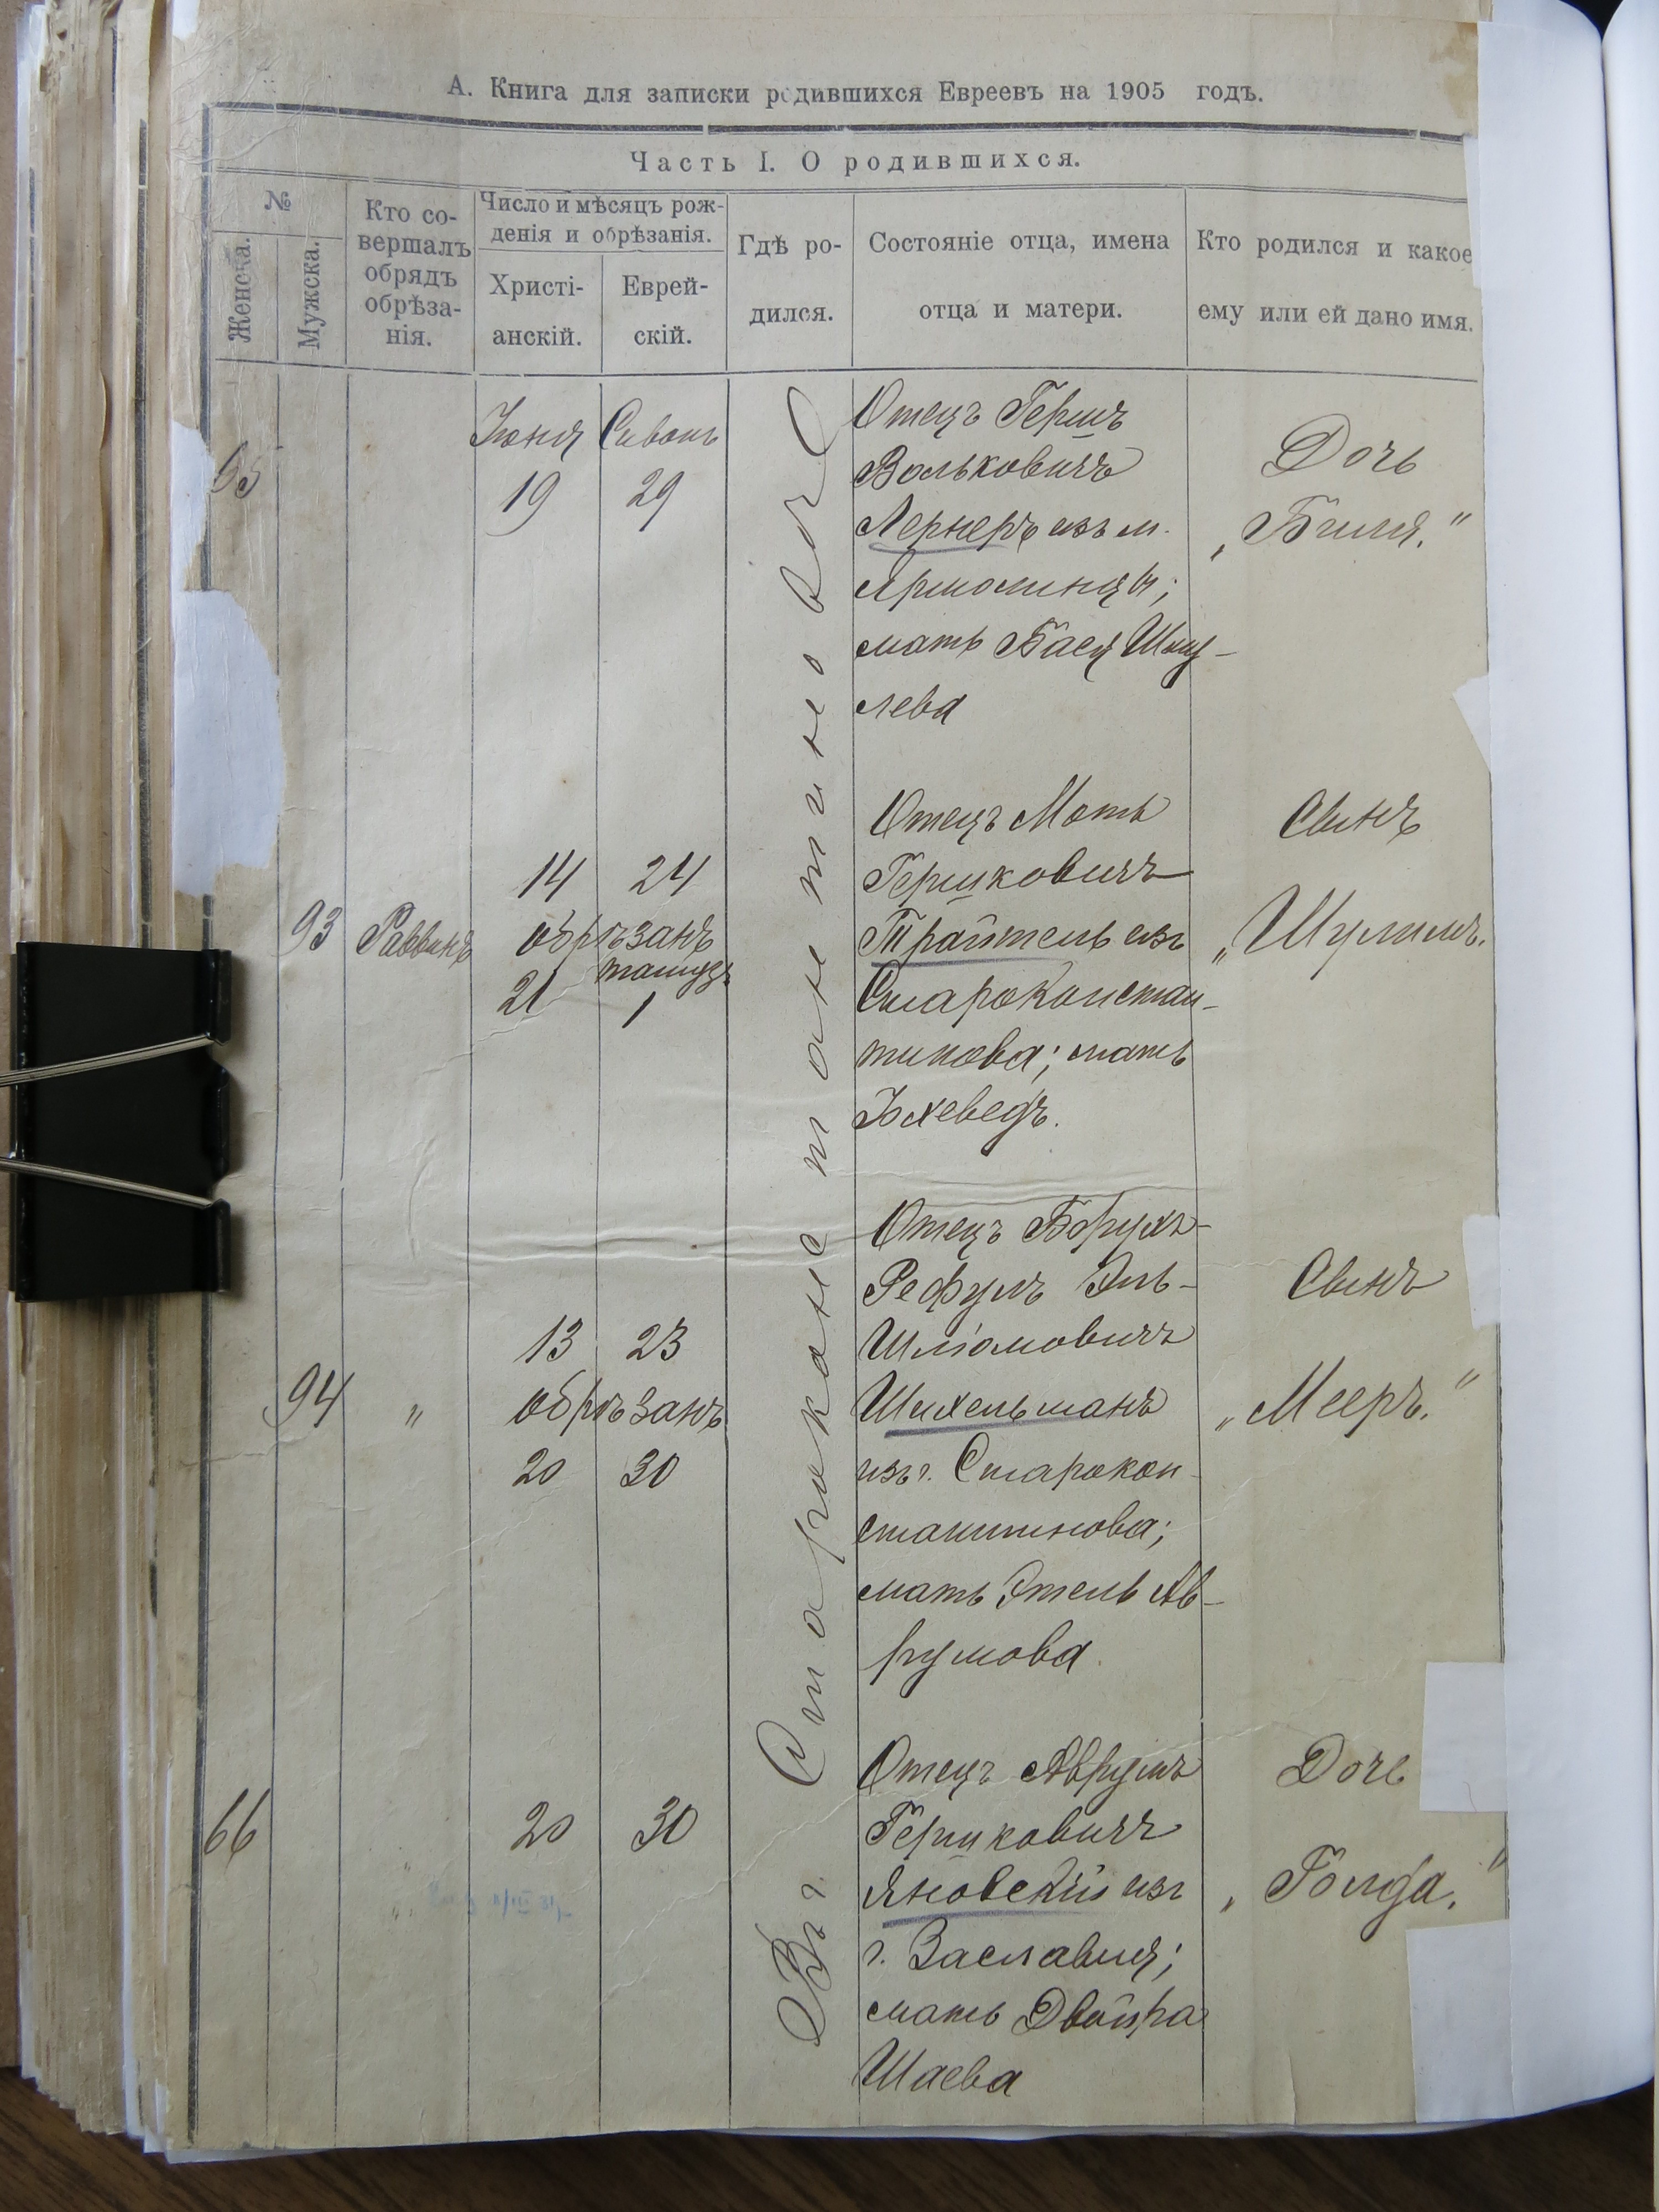 А. Книга для записки родившихся Евреевъ на 1905 годъ.
Часть I. О родившихся.
№
Женска.
Мужска.
Кто со-
вершалъ
обрядъ
обрѣза-
нія.
Число и мѣсяцъ рож-
денія и обрѣзанія.
Христі-
анскій.
Еврей-
скій.
Гдѣ ро-
дился.
Состояніе отца, имена
отца и матери.
Кто родился и какое
ему или ей дано имя.
Въ г. Староконстантиновѣ
65
Іюня Сивонъ
19 29
Отецъ Гершъ
Вольковичъ
Лернеръ изъ м.
Ярмолинцы;
мать Бася Шму-
лева
Дочь
„Биля."
93
Раввинъ
14 24
обрѣзанъ
тамузъ
21 1
Отецъ Моть
Гершковичъ
Трайтель изъ
Староконстан-
тинова; мать
Юхеведъ.
Сынъ
„Шулимъ.
94
"
13 23
обрѣзанъ
20 30
Отецъ Борухъ-
Рефулъ Эль-
Шліомовичъ
Шихельманъ
изъ г. Старокон-
стантинова;
мать Этель Ав-
румова.
Сынъ
„Мееръ."
66
20 30
Отецъ Аврумъ
Гершковичъ
Яновскій изъ
г. Заславля;
мать Двойра
Шаева
Дочь
„Голда."